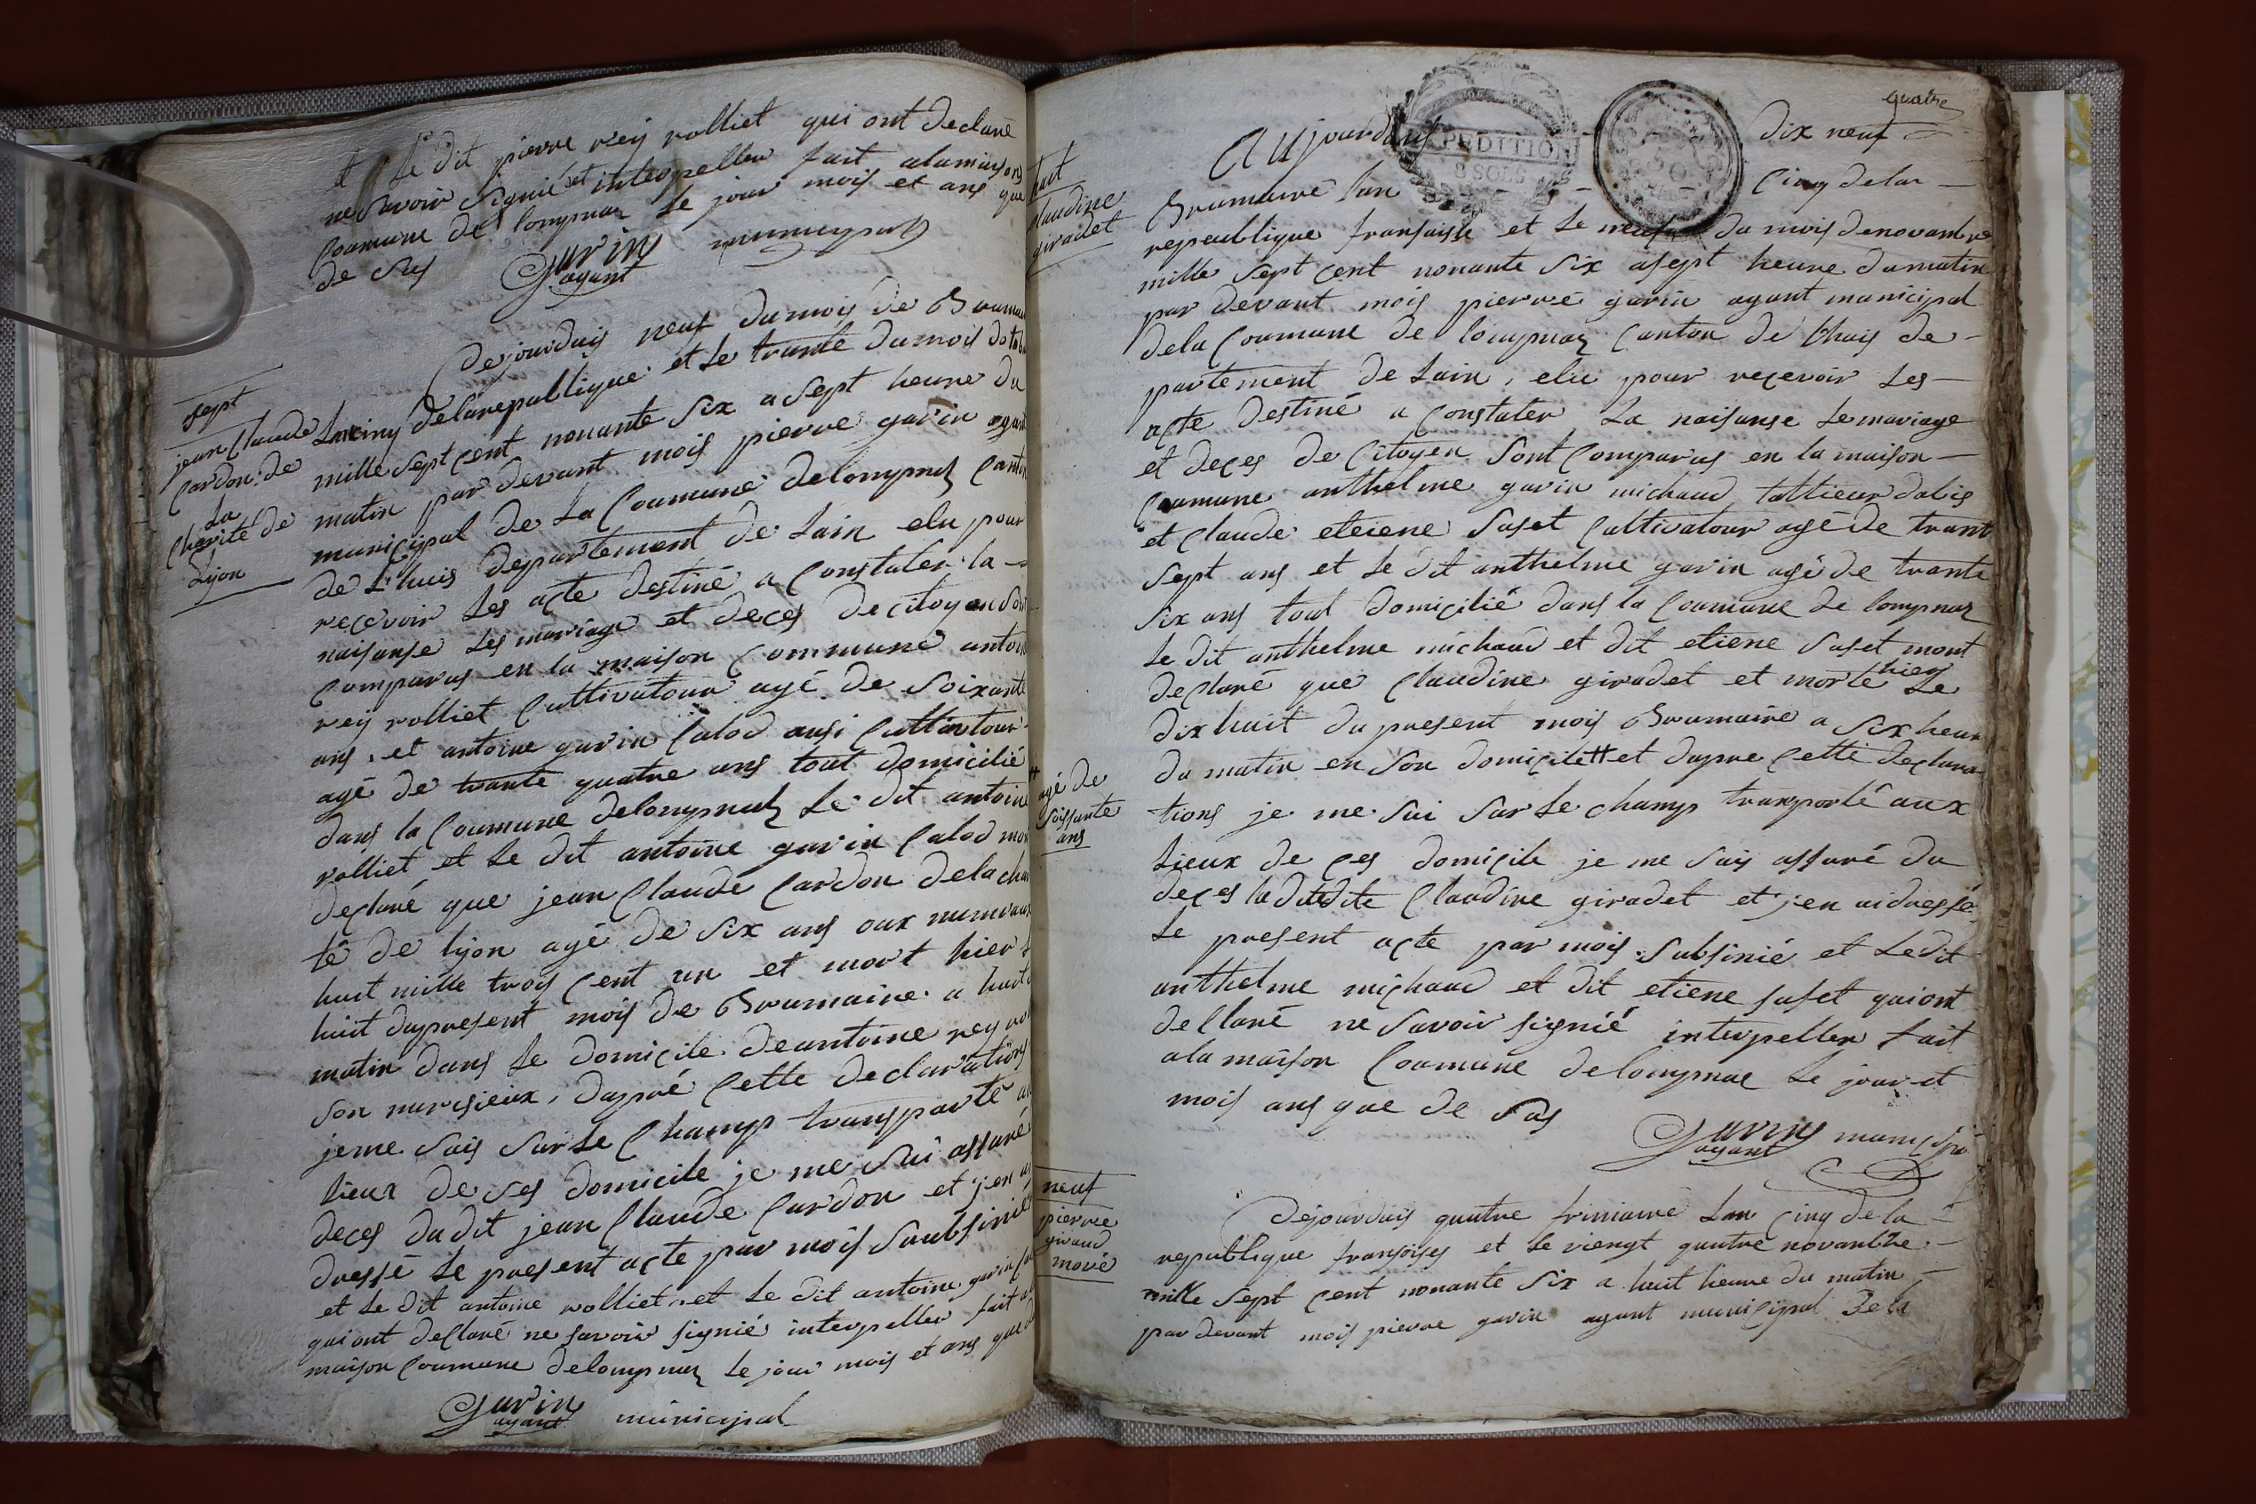 et le dit pierre rey rolliet qui ont declaré
ne savoir signié et interpeller fait alamaison
Coumune de lompnaz le jour mois et ans que
de sus
garin
agant
municipal
sept
jean Claude
Cardon: de
La
Charité de
Lijon
Dejourduis neuf dumois de Brumai
Lan cinq delarepublique et le trante dumois dotob
mille sept cent nonante six a sept heure du
matin par devant mois pierre garin agant
municipal de La Coumune delompnaz Canton
de L'huis departement de Lain elu pour
recevoir Les acte destiné a Constater la
naisanse Les mariage et deces decitoyen sont
Comparus en la maison Commune antoine
rey rolliet Cultivatour agé de soixante
ans, et antoine garin Calod ausi Cultivatour
agé de trante quatre ans tout domicilié
dans la Coumune delompnaz Le dit antoine
rolliet et Le dit antoine garin Calod mont
declaré que jean Claude Cardon delachari
té de lijon agé de six ans aux numeraux
huit mille trois cent un et mort hier
huit dupresent mois de Brumaire a huit
matin dans le domicile deantoine rey
son nurisieux, daprè cette declarations
jeme suis sur le Champs transporté au
Lieux de ses domicile je me sui assuré
deces dudit jean Claude Cardon et jen ai
dressé le present acte par mois soubsinié
et le dit antoine rolliet et le dit antoine garin
qui ont declaré ne savoir signié interpeller fait
maison Coumune delompnaz le jour mois et ans que
garin
agant
municipal
quatre
PEDITION
8 SOLS
huit
Claudine
giradet
Aujourduis dix neuf
Brumaire Lan Cinq dela
republique fransaise et le neuf du mois denovanbre
mille sept cent nonante six asept heure dumatin
par devant mois pierre garin agant municipal
dela Coumune de lompnaz Canton de lhuis de
partement de Lain, elu pour recevoir Les
acte destiné a Constater La naisanse le mariage
et deces de Citoyen sont Comparus en la maison
Coumune anthelme garin michaud
et Claude etiene suset Cultivatour agé de trant
sept ans et le dit anthelme garin agé de trante
six ans tout domicilié dans la Coumune de lompnaz
le dit anthelme michaud et dit etiene suset mont
declaré que Claudine giradet et morte hier le
dix huit du present mois Brumaire a six heure
du matin en son domicile # et dapre cette declara
# agé de
soissante
ans
tions je me sui sur le champs transporté aux
Lieux de ces domicile je me suis assuré du
deces la ditedite Claudine giradet et jen aidressé
le present acte par mois subsinié et ledit
anthelme michaud et dit etiene suset qui ont
dellaré ne savoir signié interpeller fait
ala maison Coumune delompnaz le jour et
mois ans que de sus
garin
agant
municipal
neuf
pierre
giraud
moré
Dejourduis quatre frimaire Lan cinq dela
republique fransises et le viengt quatre novanbre
mille sept cent nonante six a huit heure du matin
par devant mois pierre garin agant municipal dela